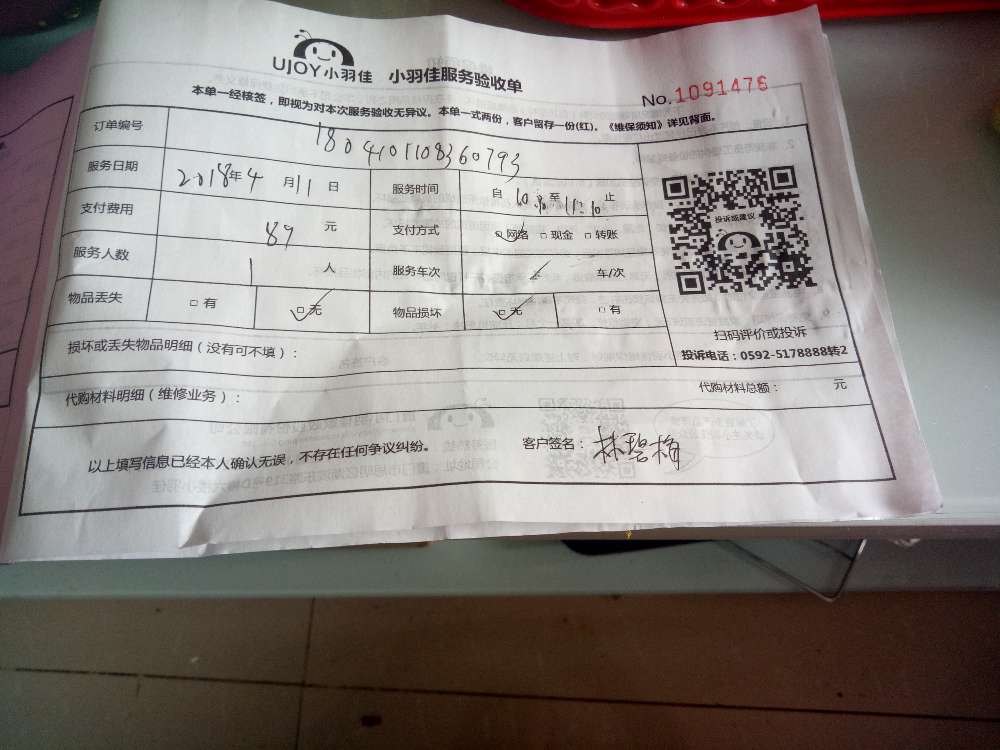 UJOY小羽佳 小羽佳服务验收单
No.1091476
本单一经核签，即视为对本次服务验收无异议。本单一式两份，客户留存一份(红)。《维保须知》详见背面。
订单编号 1804101108360793
服务日期 2018年4月11日 服务时间 自10:30至11:30止
支付费用 89元 支付方式 □网络 □现金 □转账
服务人数 1人 服务车次 车/次
物品丢失 □有 □无 物品损坏 □无 □有
投诉或建议
扫码评价或投诉
投诉电话：0592-5178888转2
损坏或丢失物品明细（没有可不填）：
代购材料明细（维修业务）： 代购材料总额： 元
以上填写信息已经本人确认无误，不存在任何争议纠纷。 客户签名：林碧梅